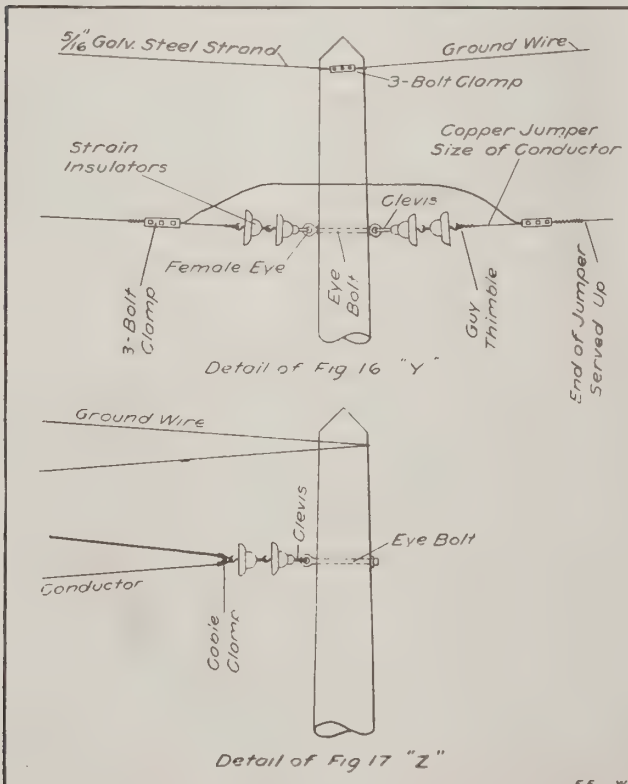 5/16" Galv. Steel Strand
Ground Wire
3-Bolt Clamp
Copper Jumper
Size of Conductor
Strain
Insulators
Clevis
Female Eye
Eye
Bolt
3-Bolt
Clamp
Guy
Thimble
End of Jumper
Served Up
Detail of Fig 16 "Y"
Ground Wire
Clevis
Eye Bolt
Conductor
Cable
Clamp
Detail of Fig 17 "Z"